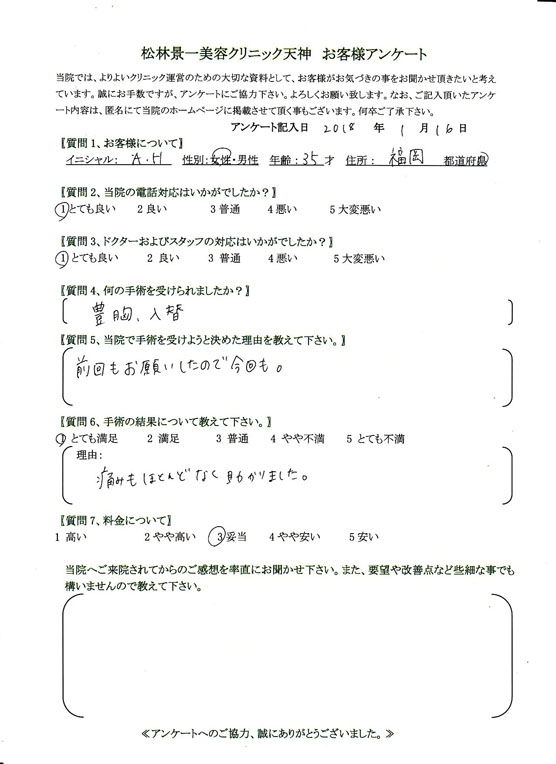 松林景一美容クリニック天神　お客様アンケート
当院では、よりよいクリニック運営のための大切な資料として、お客様がお気づきの事をお聞かせ頂きたいと考え
ています。誠にお手数ですが、アンケートにご協力下さい。よろしくお願い致します。なお、ご記入頂いたアンケ
ート内容は、匿名にて当院のホームページに掲載させて頂く事もございます。何卒ご了承下さい。
アンケート記入日　2018　年　1　月　16　日
〖質問1、お客様について〗
イニシャル：　A.H　性別：女性・男性　年齢：35才　住所：　福岡　都道府県
〖質問2、当院の電話対応はいかがでしたか？〗
1とても良い　2良い　3普通　4悪い　5大変悪い
〖質問3、ドクターおよびスタッフの対応はいかがでしたか？〗
1とても良い　2 良い　3 普通　4悪い　5大変悪い
〖質問4、何の手術を受けられましたか？〗
豊胸、入替
〖質問5、当院で手術を受けようと決めた理由を教えて下さい。〗
前回もお願いしたので今回も。
〖質問6、手術の結果について教えて下さい。〗
1 とても満足　2 満足　3 普通　4 やや不満　5 とても不満
理由：
痛みもほとんどなく助かりました。
〖質問7、料金について〗
1 高い　2やや高い　3妥当　4やや安い　5安い
当院へご来院されてからのご感想を率直にお聞かせ下さい。また、要望や改善点など些細な事でも
構いませんので教えて下さい。
≪アンケートへのご協力、誠にありがとうございました。≫